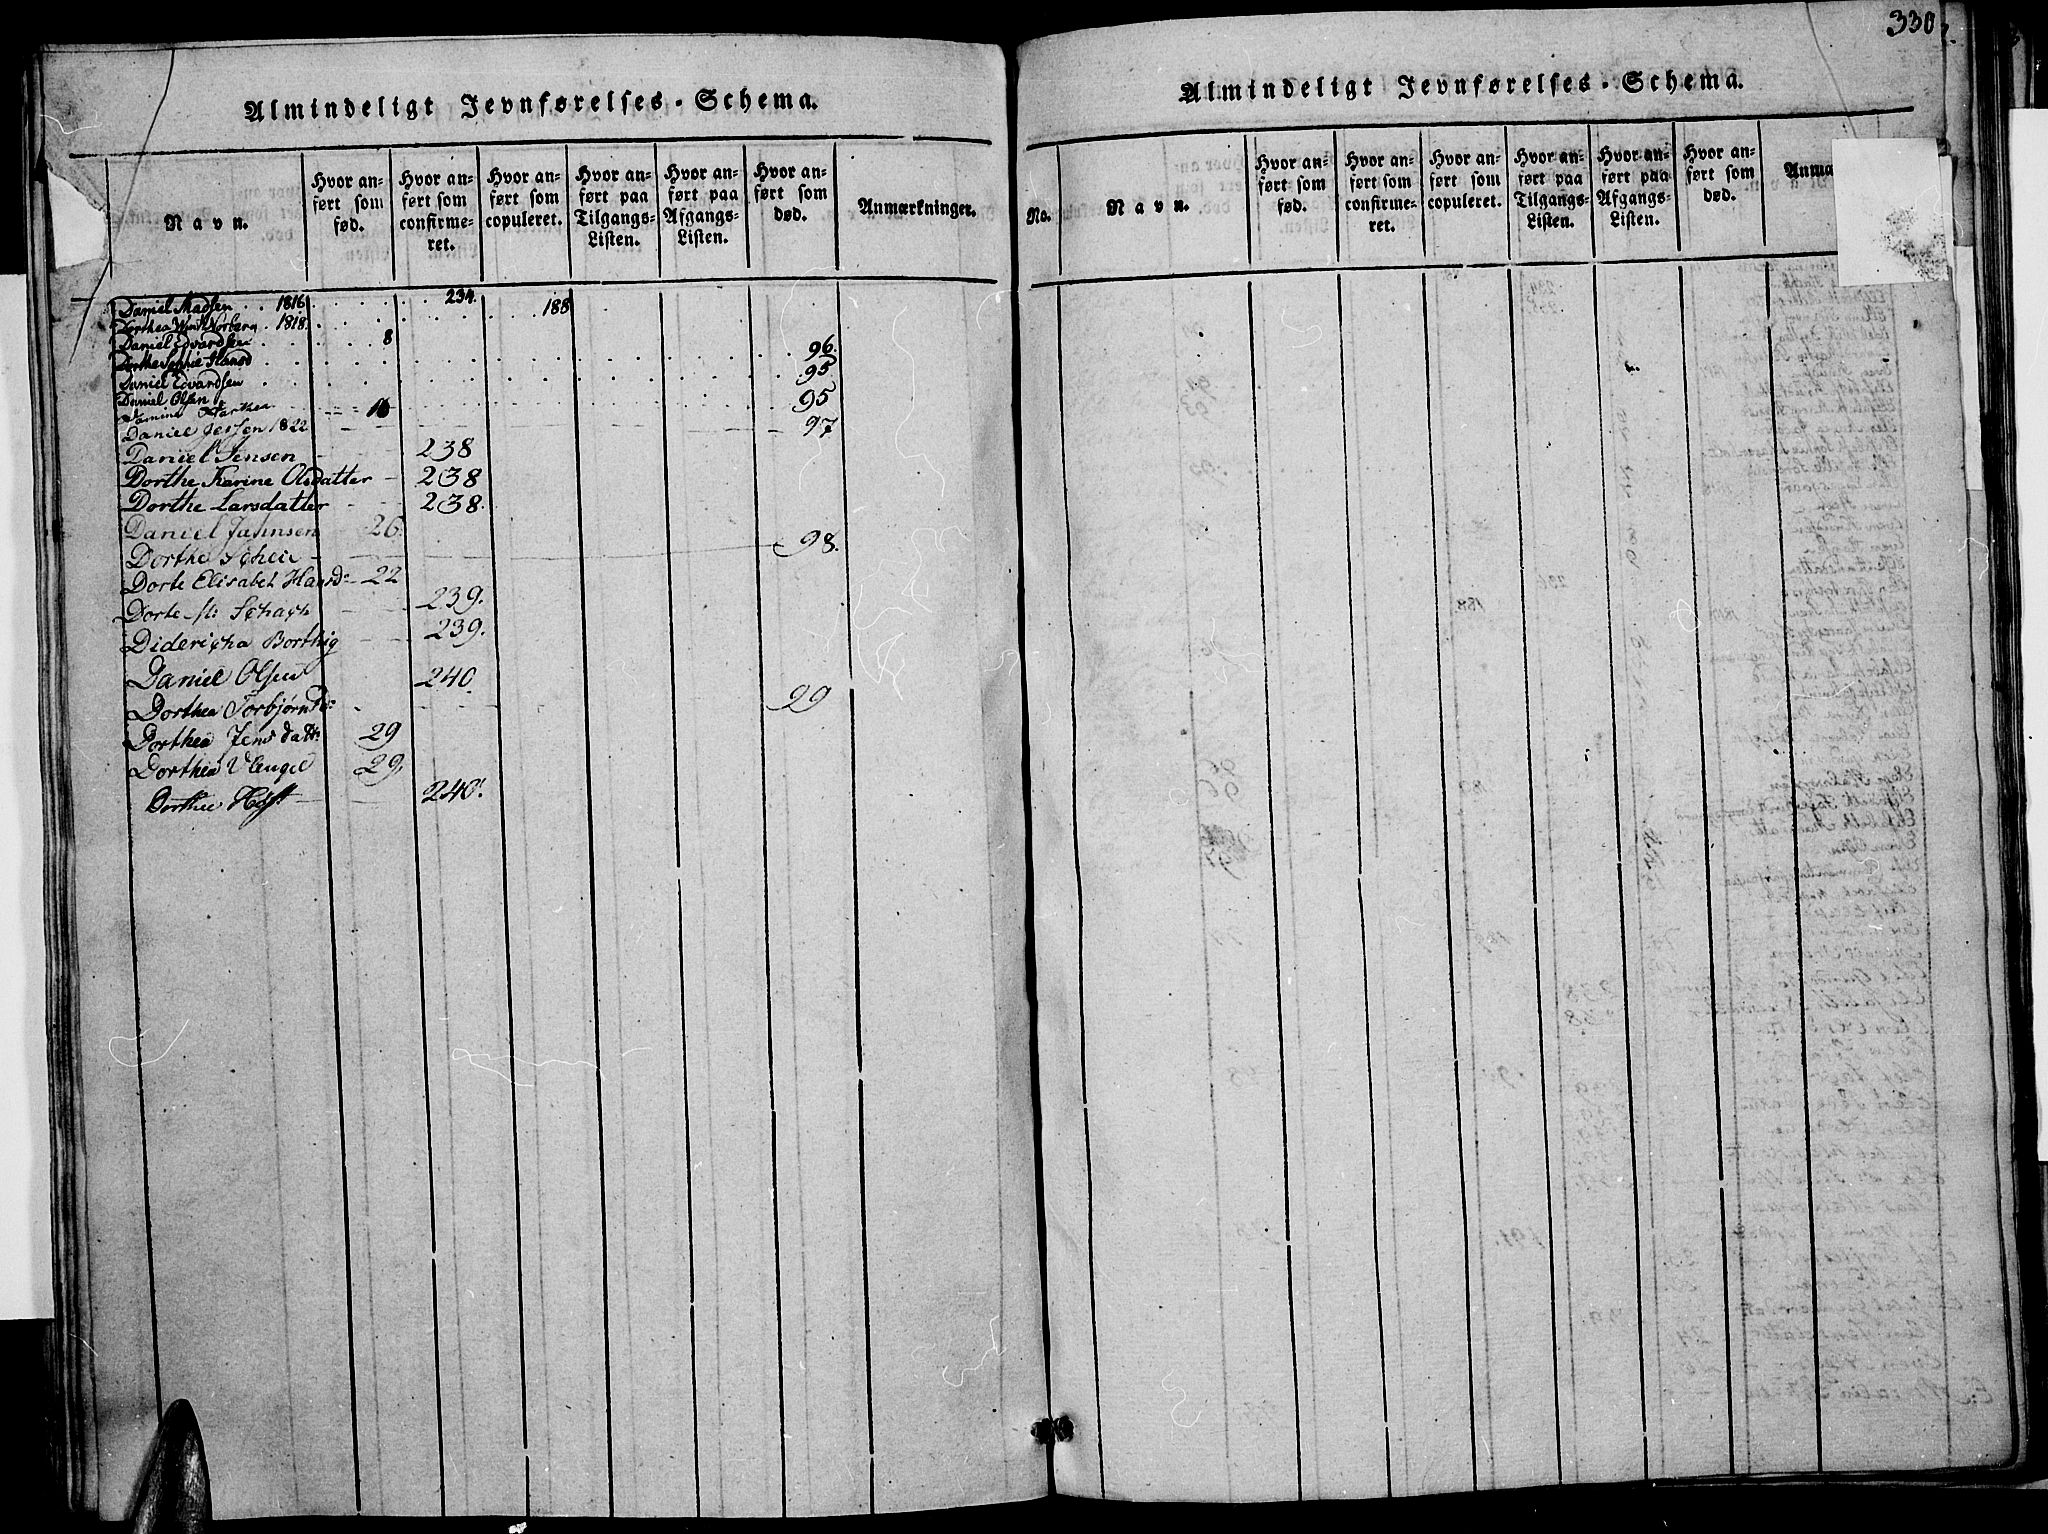 330
Almindeligt Jevnførelses-Schema.
Navn.
Hvor anført som fød.
Hvor anført som confirmeret.
Hvor anført som copuleret.
Hvor anført paa Tilgangs-Listen.
Hvor anført paa Afgangs-Listen.
Hvor anført som død.
Anmærkninger.
Daniel Madsen . . 1816 234.
Dorthea Norberg . 1818. 188
Daniel Edvardsen 8
Dorthe Sophie Hansd 96.
Daniel Edvardsen 95
Daniel Olsen 95
16
Daniel 1822 97
Daniel Jensen 238
Dorthe Karine Olsdatter 238
Dorthe Larsdatter 238.
Daniel 26
Dorthe 98.
Dorte Elisabet Hansd: 22
Dorte M: Schach 239.
Didericha 239.
Daniel Olsen 240.
Dorthea Torbjørnd: 29
Dorthea Jensdatt: 29
Dorthea 29
Dorthee Høst 240.
Almindeligt Jevnførelses-Schema.
No.
Navn.
Hvor anført som fød.
Hvor anført som confirmeret.
Hvor anført som copuleret.
Hvor anført paa Tilgangs-Listen.
Hvor anført paa Afgangs-Listen.
Hvor anført som død.
Anmæ